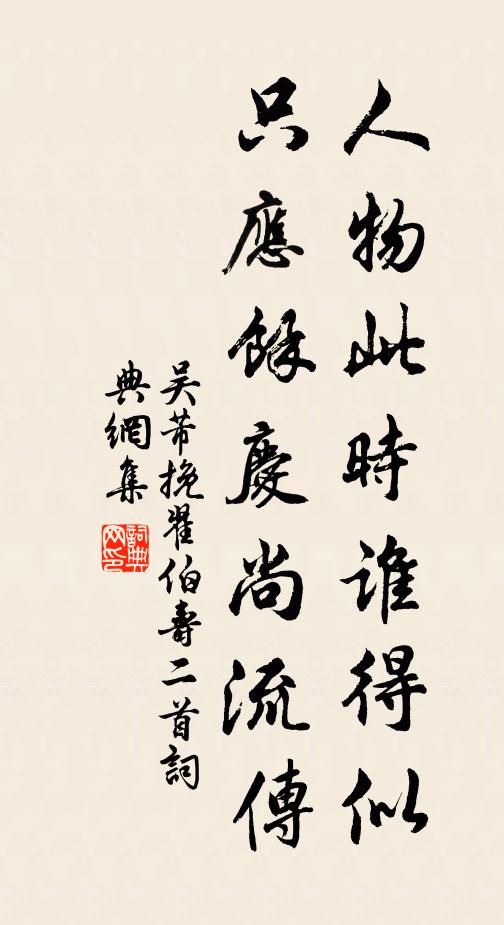 人物此時誰得似
只應餘慶尚流傳
吳芾挽翟伯壽二首詞
典網集
詞典網印